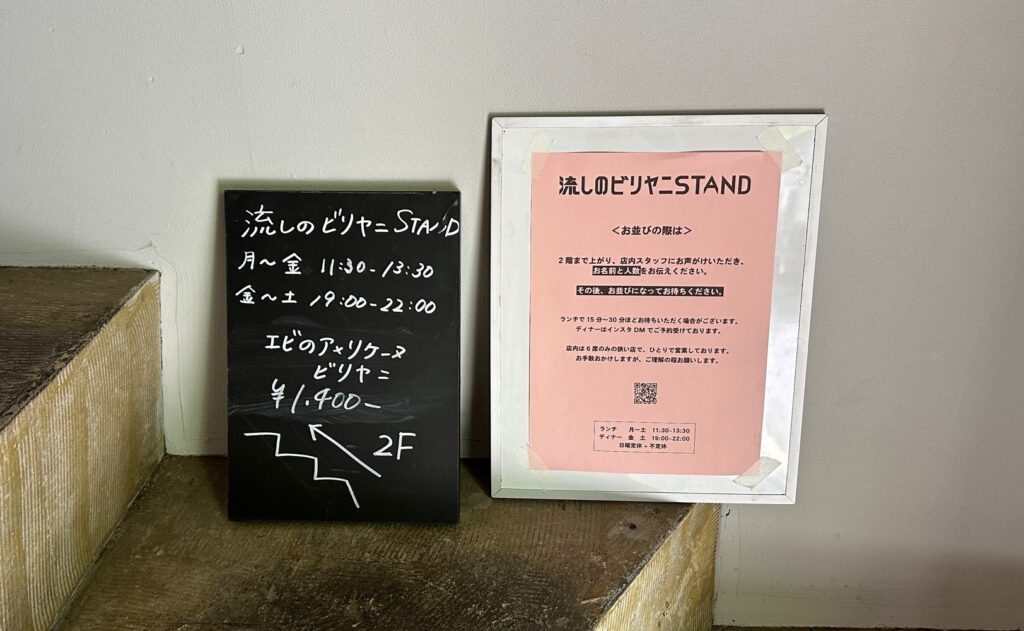 流しのビリヤニSTAND
月〜金 11:30-13:30
金〜土 19:00-22:00
エビのアメリケーヌ
ビリヤニ
¥1.400-
2F
流しのビリヤニSTAND
＜お並びの際は＞
2階まで上がり、店内スタッフにお声がけいただき、
お名前と人数をお伝えください。
その後、お並びになってお待ちください。
ランチで15分〜30分ほどお待ちいただく場合がございます。
ディナーはインスタDMでご予約受けております。
店内は6席のみの狭い店で、ひとりで営業しております。
お手数おかけしますが、ご理解の程お願いします。
ランチ 月〜土 11:30-13:30
ディナー 金 土 19:00-22:00
日曜定休+不定休